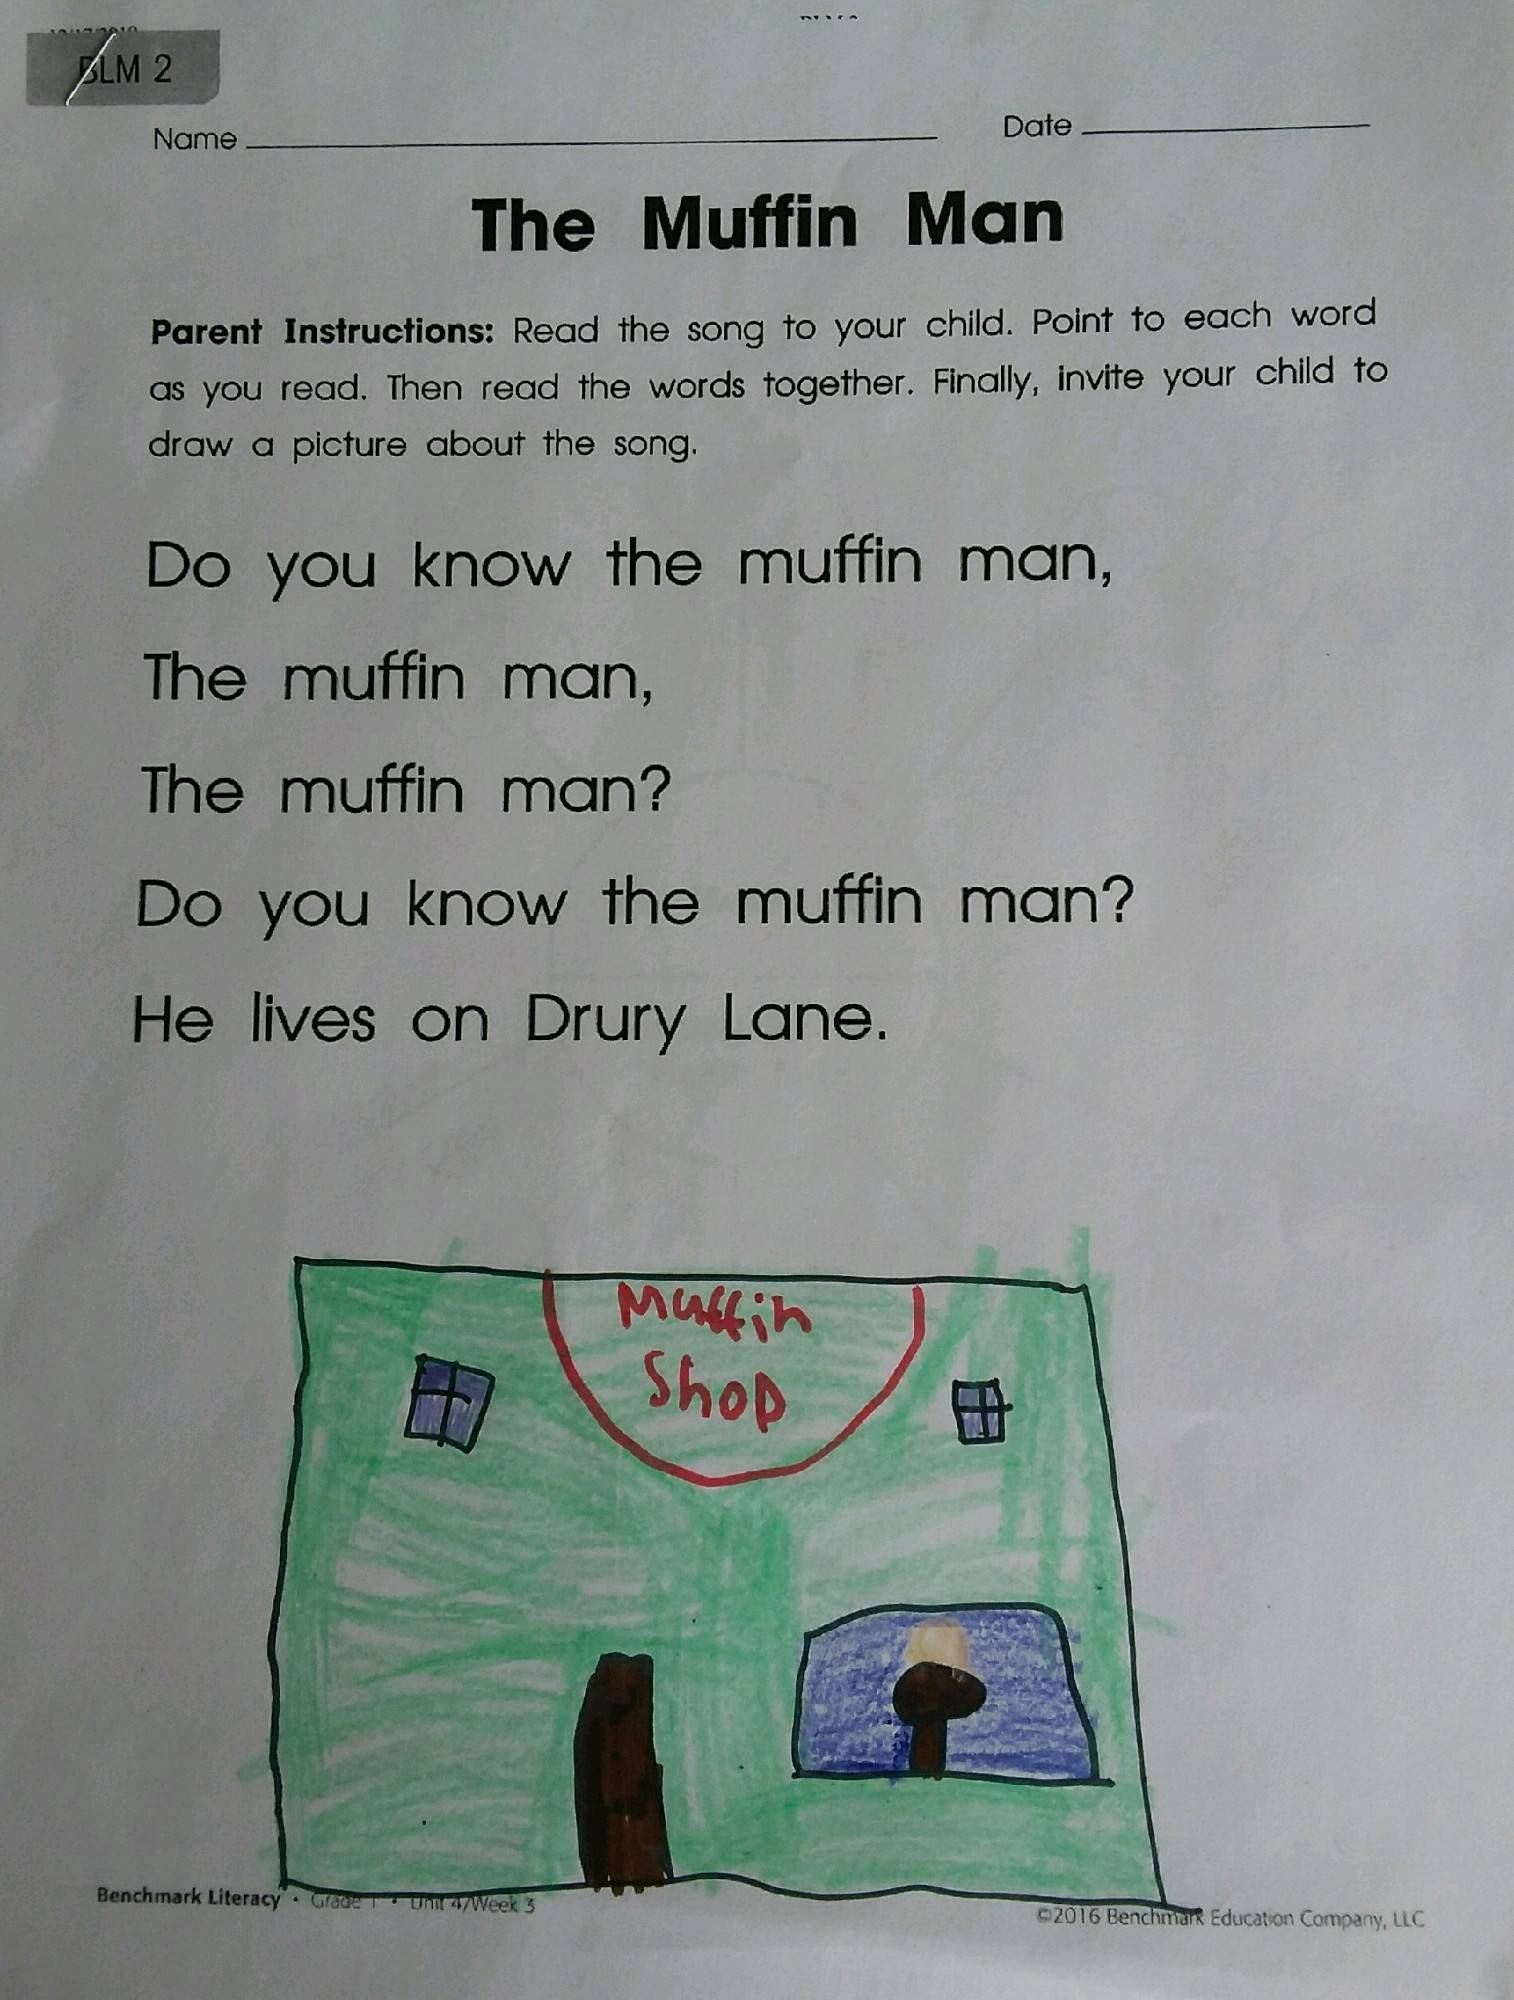 BLM 2
Name Date
The Muffin Man
Parent Instructions: Read the song to your child. Point to each word
as you read. Then read the words together. Finally, invite your child to
draw a picture about the song.
Do you know the muffin man,
The muffin man,
The muffin man?
Do you know the muffin man?
He lives on Drury Lane.
Muffin
Shop
Benchmark Literacy • Grade 1 • Unit 4/Week 3
©2016 Benchmark Education Company, LLC